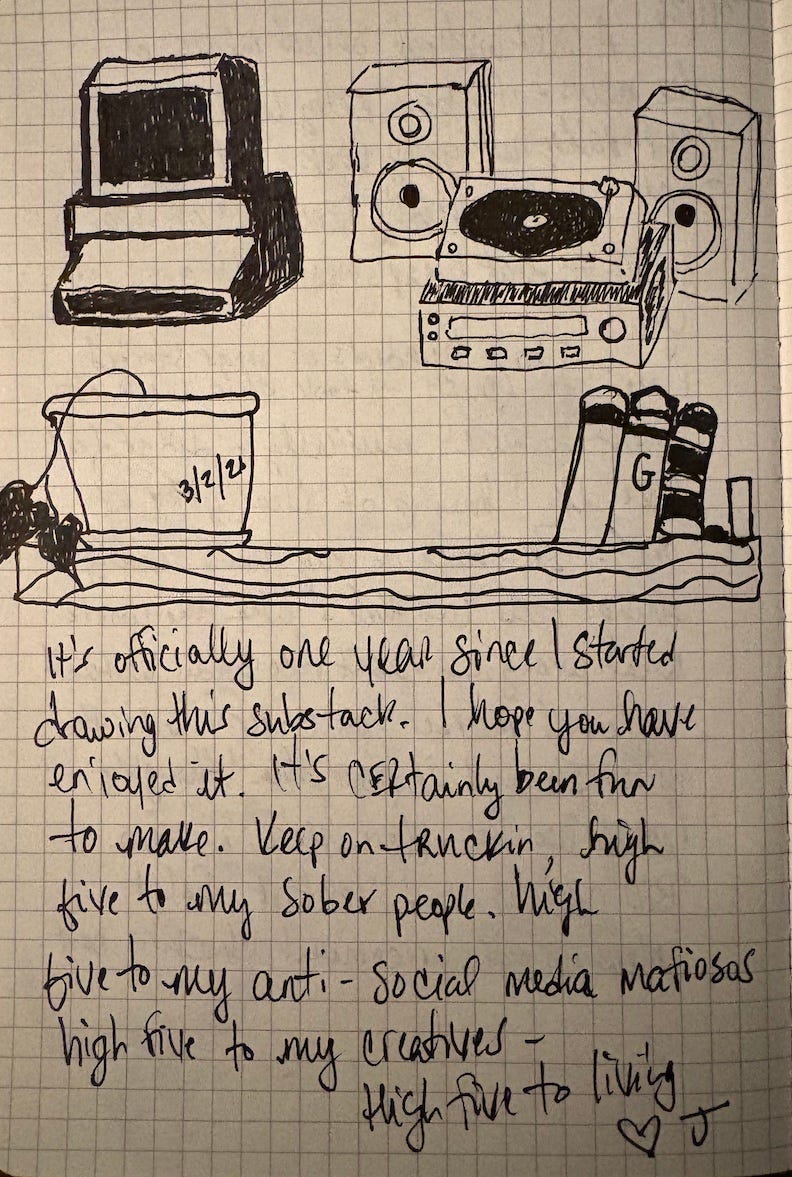 3/2/26
G
It's officially one year since I started
drawing this substack. I hope you have
enjoyed it. It's certainly been fun
to make. Keep on-truckin, high
five to my sober people. high
five to my anti-social media mafiosos
high five to my creatives -
High five to living
♡ J